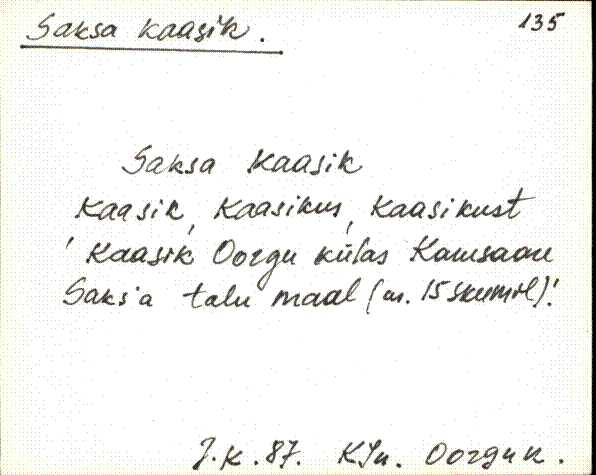 Saksa kaasik.
135
Saksa Kaasik
Kaasik, Kaasikus, Kaasikust
' Kaasik Oorgu külas
Saksa talu maal
J.K. 87. KJn. Oorgu k.